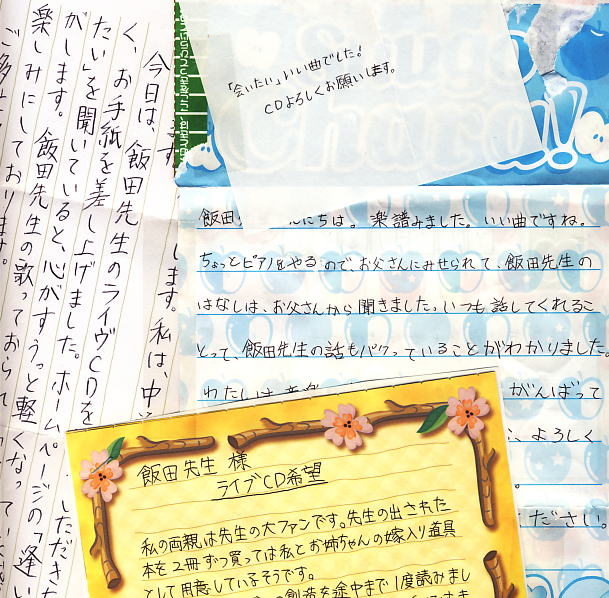 「会いたい」いい曲でした!
CDよろしくお願いします。
ます
します。私は、中
今日は、飯田先生のライヴCDを
しただきた
く、お手紙を差し上げました。ホームページの「逢い
たい」を聞いていると、心がすうっと軽くなってい
がします。飯田先生の歌っておられ
楽しみにしております。
ご多
飯田 んにちは。楽譜みました。いい曲ですね。
ちょっとピアノをやるのでお父さんにみせられて、飯田先生の
はなしは、お父さんから聞きました。いつも話してくれるこ
とって、飯田先生の話もパクっていることがわかりました。
わたしは がんばって
、よろしく
ください。
飯田先生 様
ライブCD希望
私の両親は先生の大ファンです。先生の出された
本を2冊ずつ買っては私とお姉ちゃんの嫁入り道具
として用意しているそうです。
の創造を途中まで1度読みまし